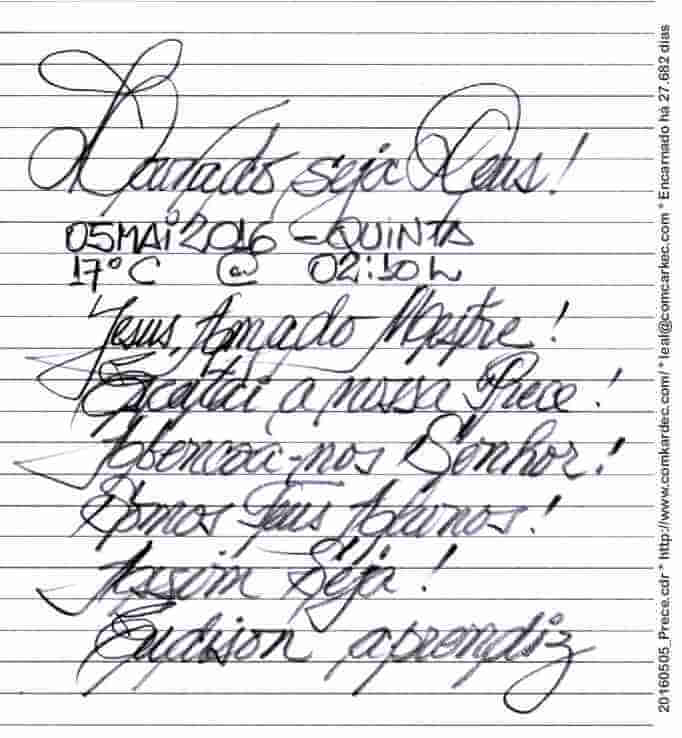 Louvado seja Deus!
05MAI2016 - QUINTA
17°C @ 02:10h
Jesus, Amado Mestre!
Escutai a nossa Prece!
Abençoa-nos Senhor!
Somos Teus Alunos!
Assim Seja!
Eudison aprendiz
20160505_Prece.cdr * http://www.comkardec.com/ * leal@comcarkec.com * Encarnado há 27.682 dias